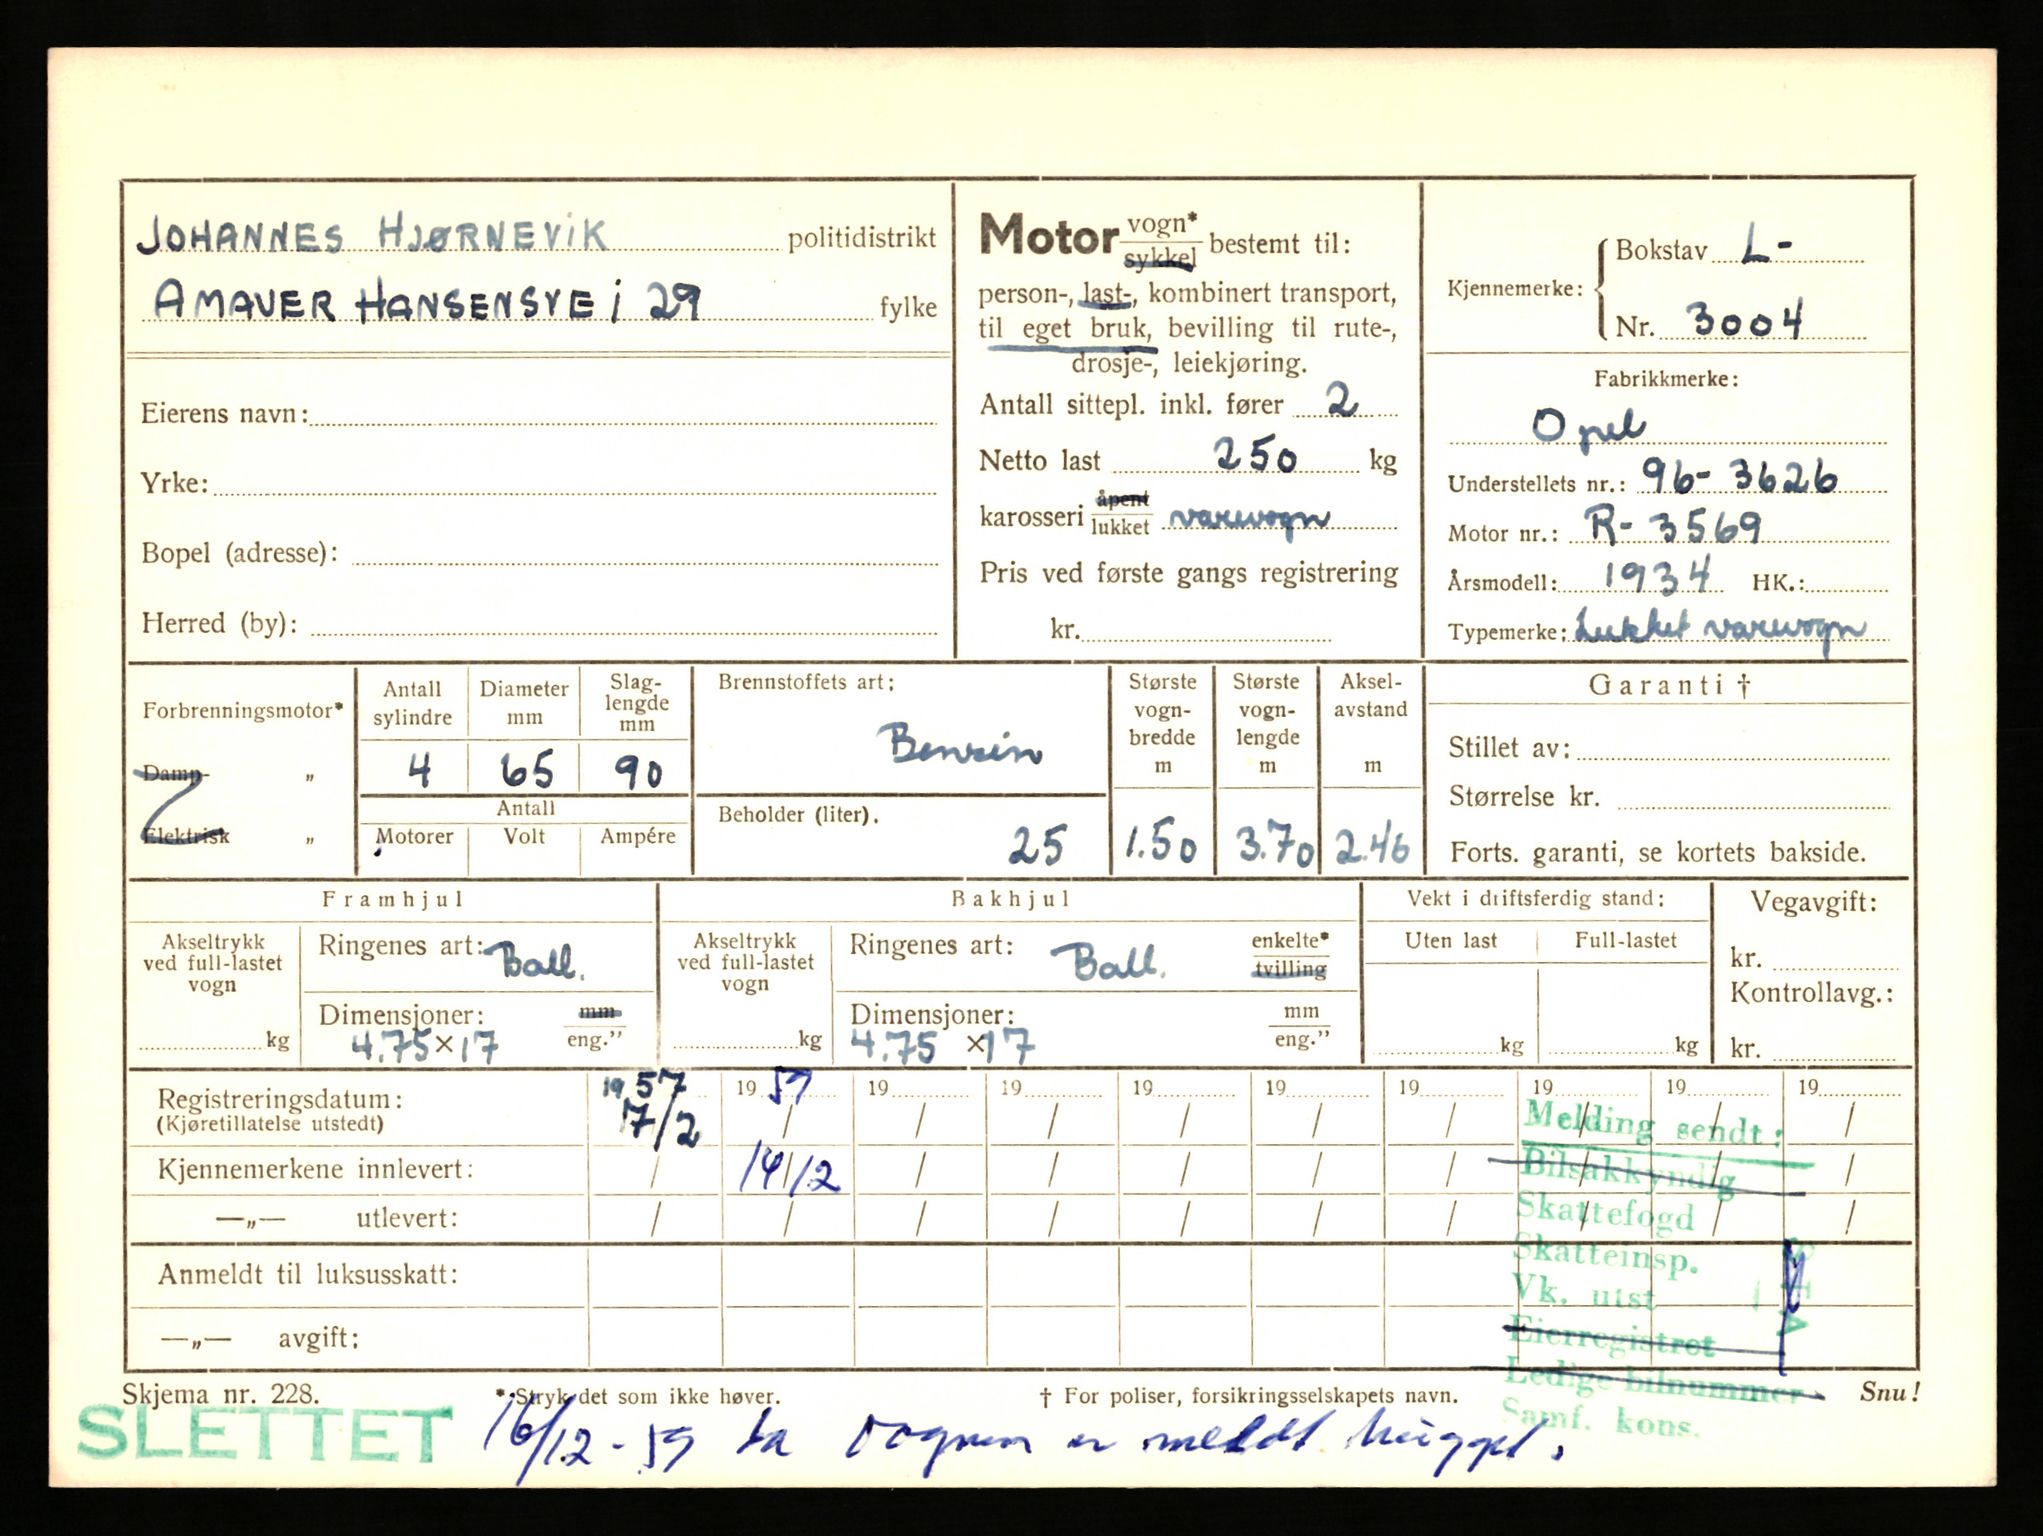 JOHANNES HJØRNEVIK politidistrikt
AMAVER HANSENSVEI 29 fylke
Eierens navn:
Yrke:
Bopel (adresse):
Herred (by):
Motor vogn* sykkel bestemt til:
person-, last-, kombinert transport,
til eget bruk, bevilling til rute-,
drosje-, leiekjøring.
Antall sittepl. inkl. fører 2
Netto last 250 kg
karosseri åpent lukket varevogn
Pris ved første gangs registrering
kr.
Kjennemerke: Bokstav L-
Nr. 3004
Fabrikkmerke:
Opel
Understellets nr.: 96-3626
Motor nr.: R-3569
Årsmodell: 1934 HK.:
Typemerke: Lukket varevogn
Forbrenningsmotor*
Damp- „
Elektrisk „
Antall sylindre
4
Diameter mm
65
Slag-lengde mm
90
Antall
Motorer Volt Ampére
Brennstoffets art:
Bensin
Beholder (liter).
25
Største vogn-bredde m
1.50
Største vogn-lengde m
3.70
Aksel-avstand m
2.46
Garanti †
Stillet av:
Størrelse kr.
Forts. garanti, se kortets bakside.
Framhjul
Akseltrykk ved full-lastet vogn
kg
Ringenes art: Ball.
Dimensjoner: mm
4.75×17 eng.”
Bakhjul
Akseltrykk ved full-lastet vogn
kg
Ringenes art: Ball. enkelte* tvilling
Dimensjoner: mm
4.75 ×17 eng.”
Vekt i driftsferdig stand:
Uten last Full-lastet
kg kg
Vegavgift:
kr.
Kontrollavg.:
kr.
Registreringsdatum: 19 57 19 59 19 19 19 19 19 19 19 19
(Kjøretillatelse utstedt) 7/2 / / / / / / / / /
Kjennemerkene innlevert: / 14/12 / / / / / / / /
—„— utlevert: / / / / / / / / / /
Anmeldt til luksusskatt:
—„— avgift:
Melding sendt:
Bilsakkyndig
Skattefogd
Skatteinsp.
Vk. utst
Eierregistret
Ledige bilnummer
Samf. kons.
Skjema nr. 228. * Stryk det som ikke høver. † For poliser, forsikringsselskapets navn. Snu!
SLETTET 16/12-59 da vognen er meldt hugget.